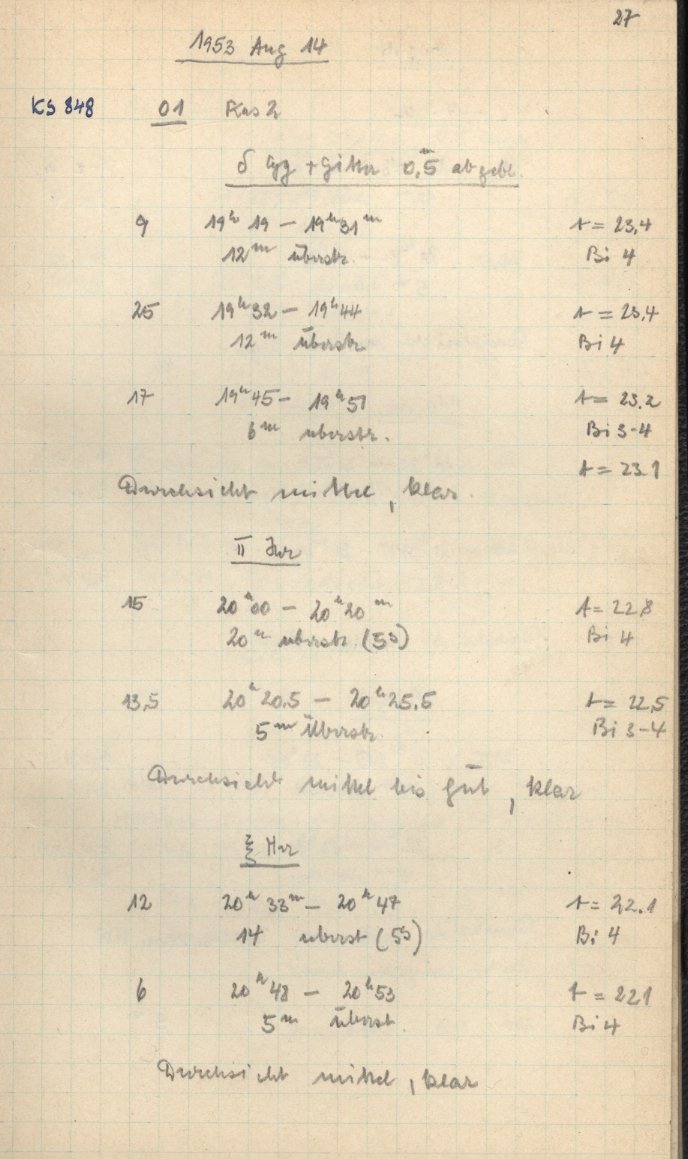 27
1953 Aug 14
KS 848 01 Kas 2
δ Cyg + Gitter 0,5ᵐ abgebl.
9 19ʰ19 – 19ʰ31ᵐ t = 23,4
12ᵐ überstr. Bi 4
25 19ʰ32 – 19ʰ44 t = 23,4
12ᵐ Überstr. Bi 4
17 19ʰ45 – 19ʰ51 t = 23,2
6ᵐ überstr. Bi 3-4
t = 23.1
Durchsicht mittel, klar.
π Her
15 20ʰ00 – 20ʰ20ᵐ t = 22,8
20ᵐ überstr. (5ˢ) Bi 4
13,5 20ʰ20.5 – 20ʰ25.5 t = 22,5
5ᵐ Überstr. Bi 3-4
Durchsicht mittel bis gut, klar
ξ Her
12 20ʰ33ᵐ – 20ʰ47 t = 22.1
14 überst (5ˢ) Bi 4
6 20ʰ48 – 20ʰ53 t = 221
5ᵐ Überst. Bi 4
Durchsicht mittel, klar